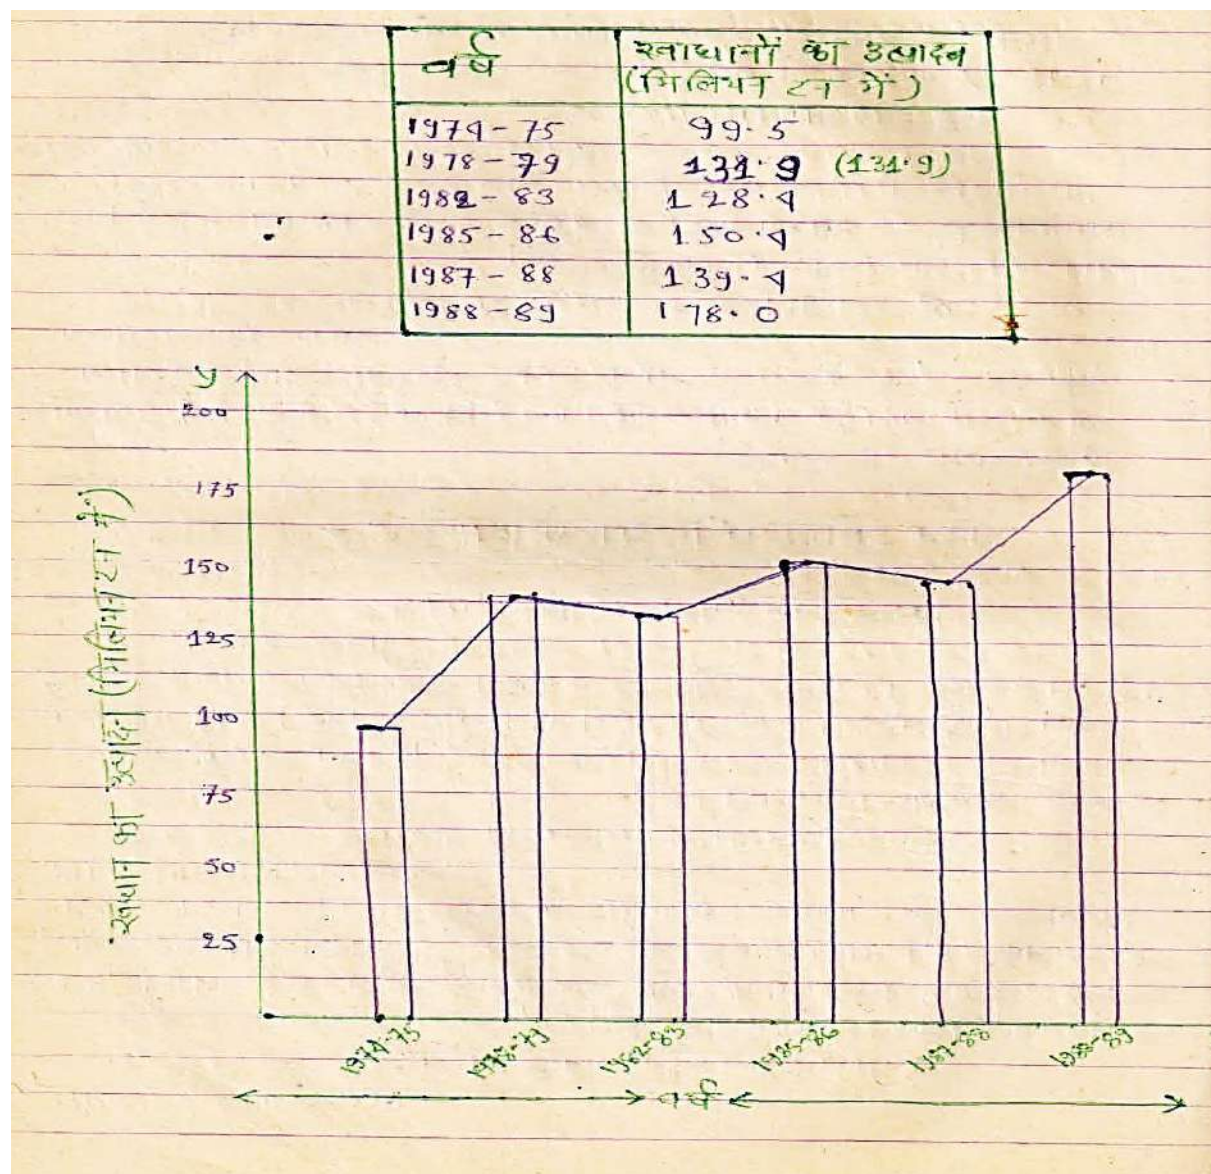 वर्ष
खाद्यानों का उत्पादन
(मिलियन टन में)
1974-75 99.5
1978-79 131.9 (131.9)
1982-83 128.4
1985-86 150.4
1987-88 139.4
1988-89 178.0
y
200
175
150
125
100
75
50
25
खाद्यान का उत्पादन (मिलियन टन में)
1974-75 1978-79 1982-83 1985-86 1987-88 1988-89
वर्ष